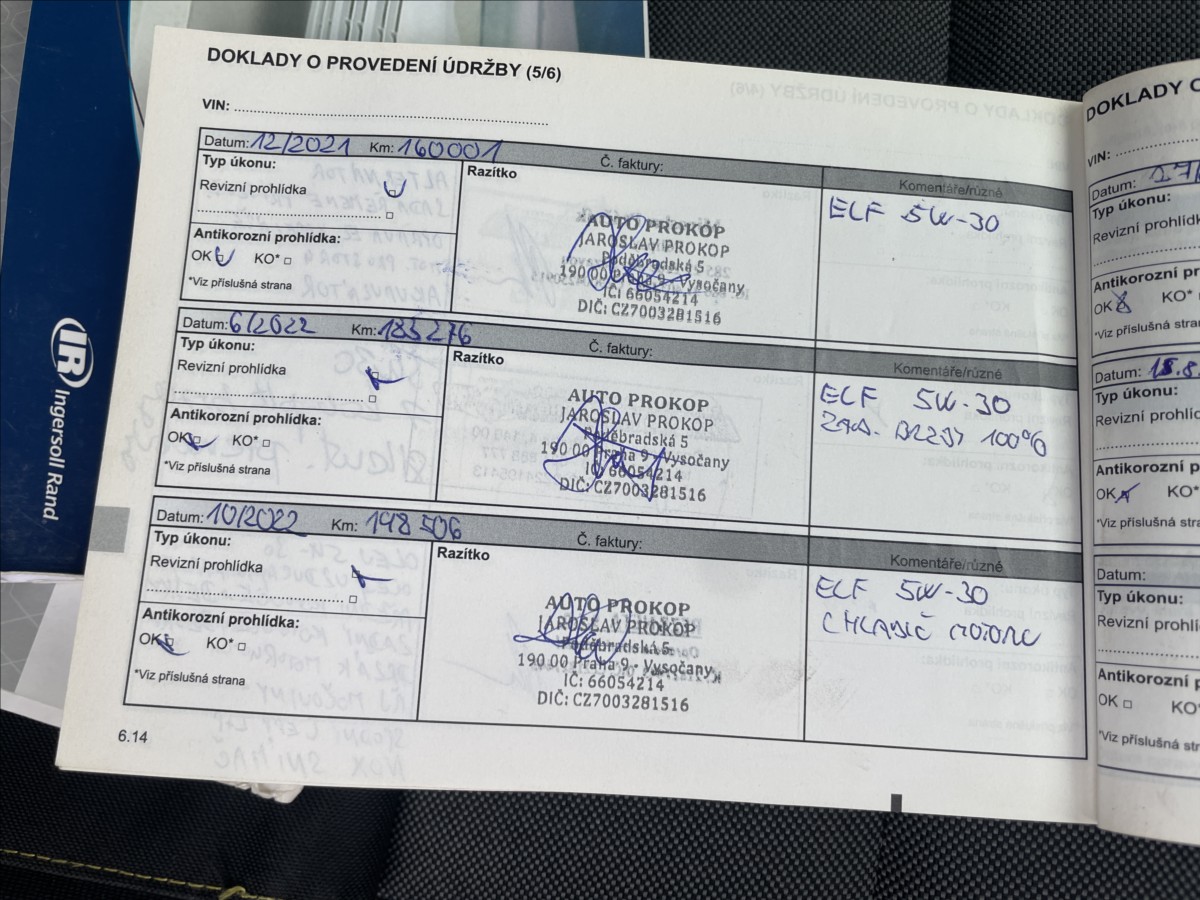 DOKLADY O PROVEDENÍ ÚDRŽBY (5/6)
VIN:
Datum: 12/2021 Km: 160001 Č. faktury:
Typ úkonu:
Revizní prohlídka
Antikorozní prohlídka:
OK KO*
*Viz příslušná strana
Razítko
AUTO PROKOP
JAROSLAV PROKOP
Poděbradská 5
190 00 Praha 9 - Vysočany
IČ: 66054214
DIČ: CZ7003281516
Komentáře/různé
ELF 5W-30
Datum: 6/2022 Km: 183276 Č. faktury:
Typ úkonu:
Revizní prohlídka
Antikorozní prohlídka:
OK KO*
*Viz příslušná strana
Razítko
AUTO PROKOP
JAROSLAV PROKOP
Poděbradská 5
190 00 Praha 9 - Vysočany
IČ: 66054214
DIČ: CZ7003281516
Komentáře/různé
ELF 5W-30
ZAD. BRZDY 100%
Datum: 10/2022 Km: 198 506 Č. faktury:
Typ úkonu:
Revizní prohlídka
Antikorozní prohlídka:
OK KO*
*Viz příslušná strana
Razítko
AUTO PROKOP
JAROSLAV PROKOP
Poděbradská 5
190 00 Praha 9 - Vysočany
IČ: 66054214
DIČ: CZ7003281516
Komentáře/různé
ELF 5W-30
CHLADIČ MOTORU
6.14
IR Ingersoll Rand
DOKLADY O
VIN:
Datum:
Typ úkonu:
Revizní prohlí
Antikorozní p
OK KO*
*Viz příslušná str
Datum: 18.8.
Typ úkonu:
Revizní prohlí
Antikorozní p
OK KO*
*Viz příslušná str
Datum:
Typ úkonu:
Revizní prohlí
Antikorozní p
OK KO*
*Viz příslušná str